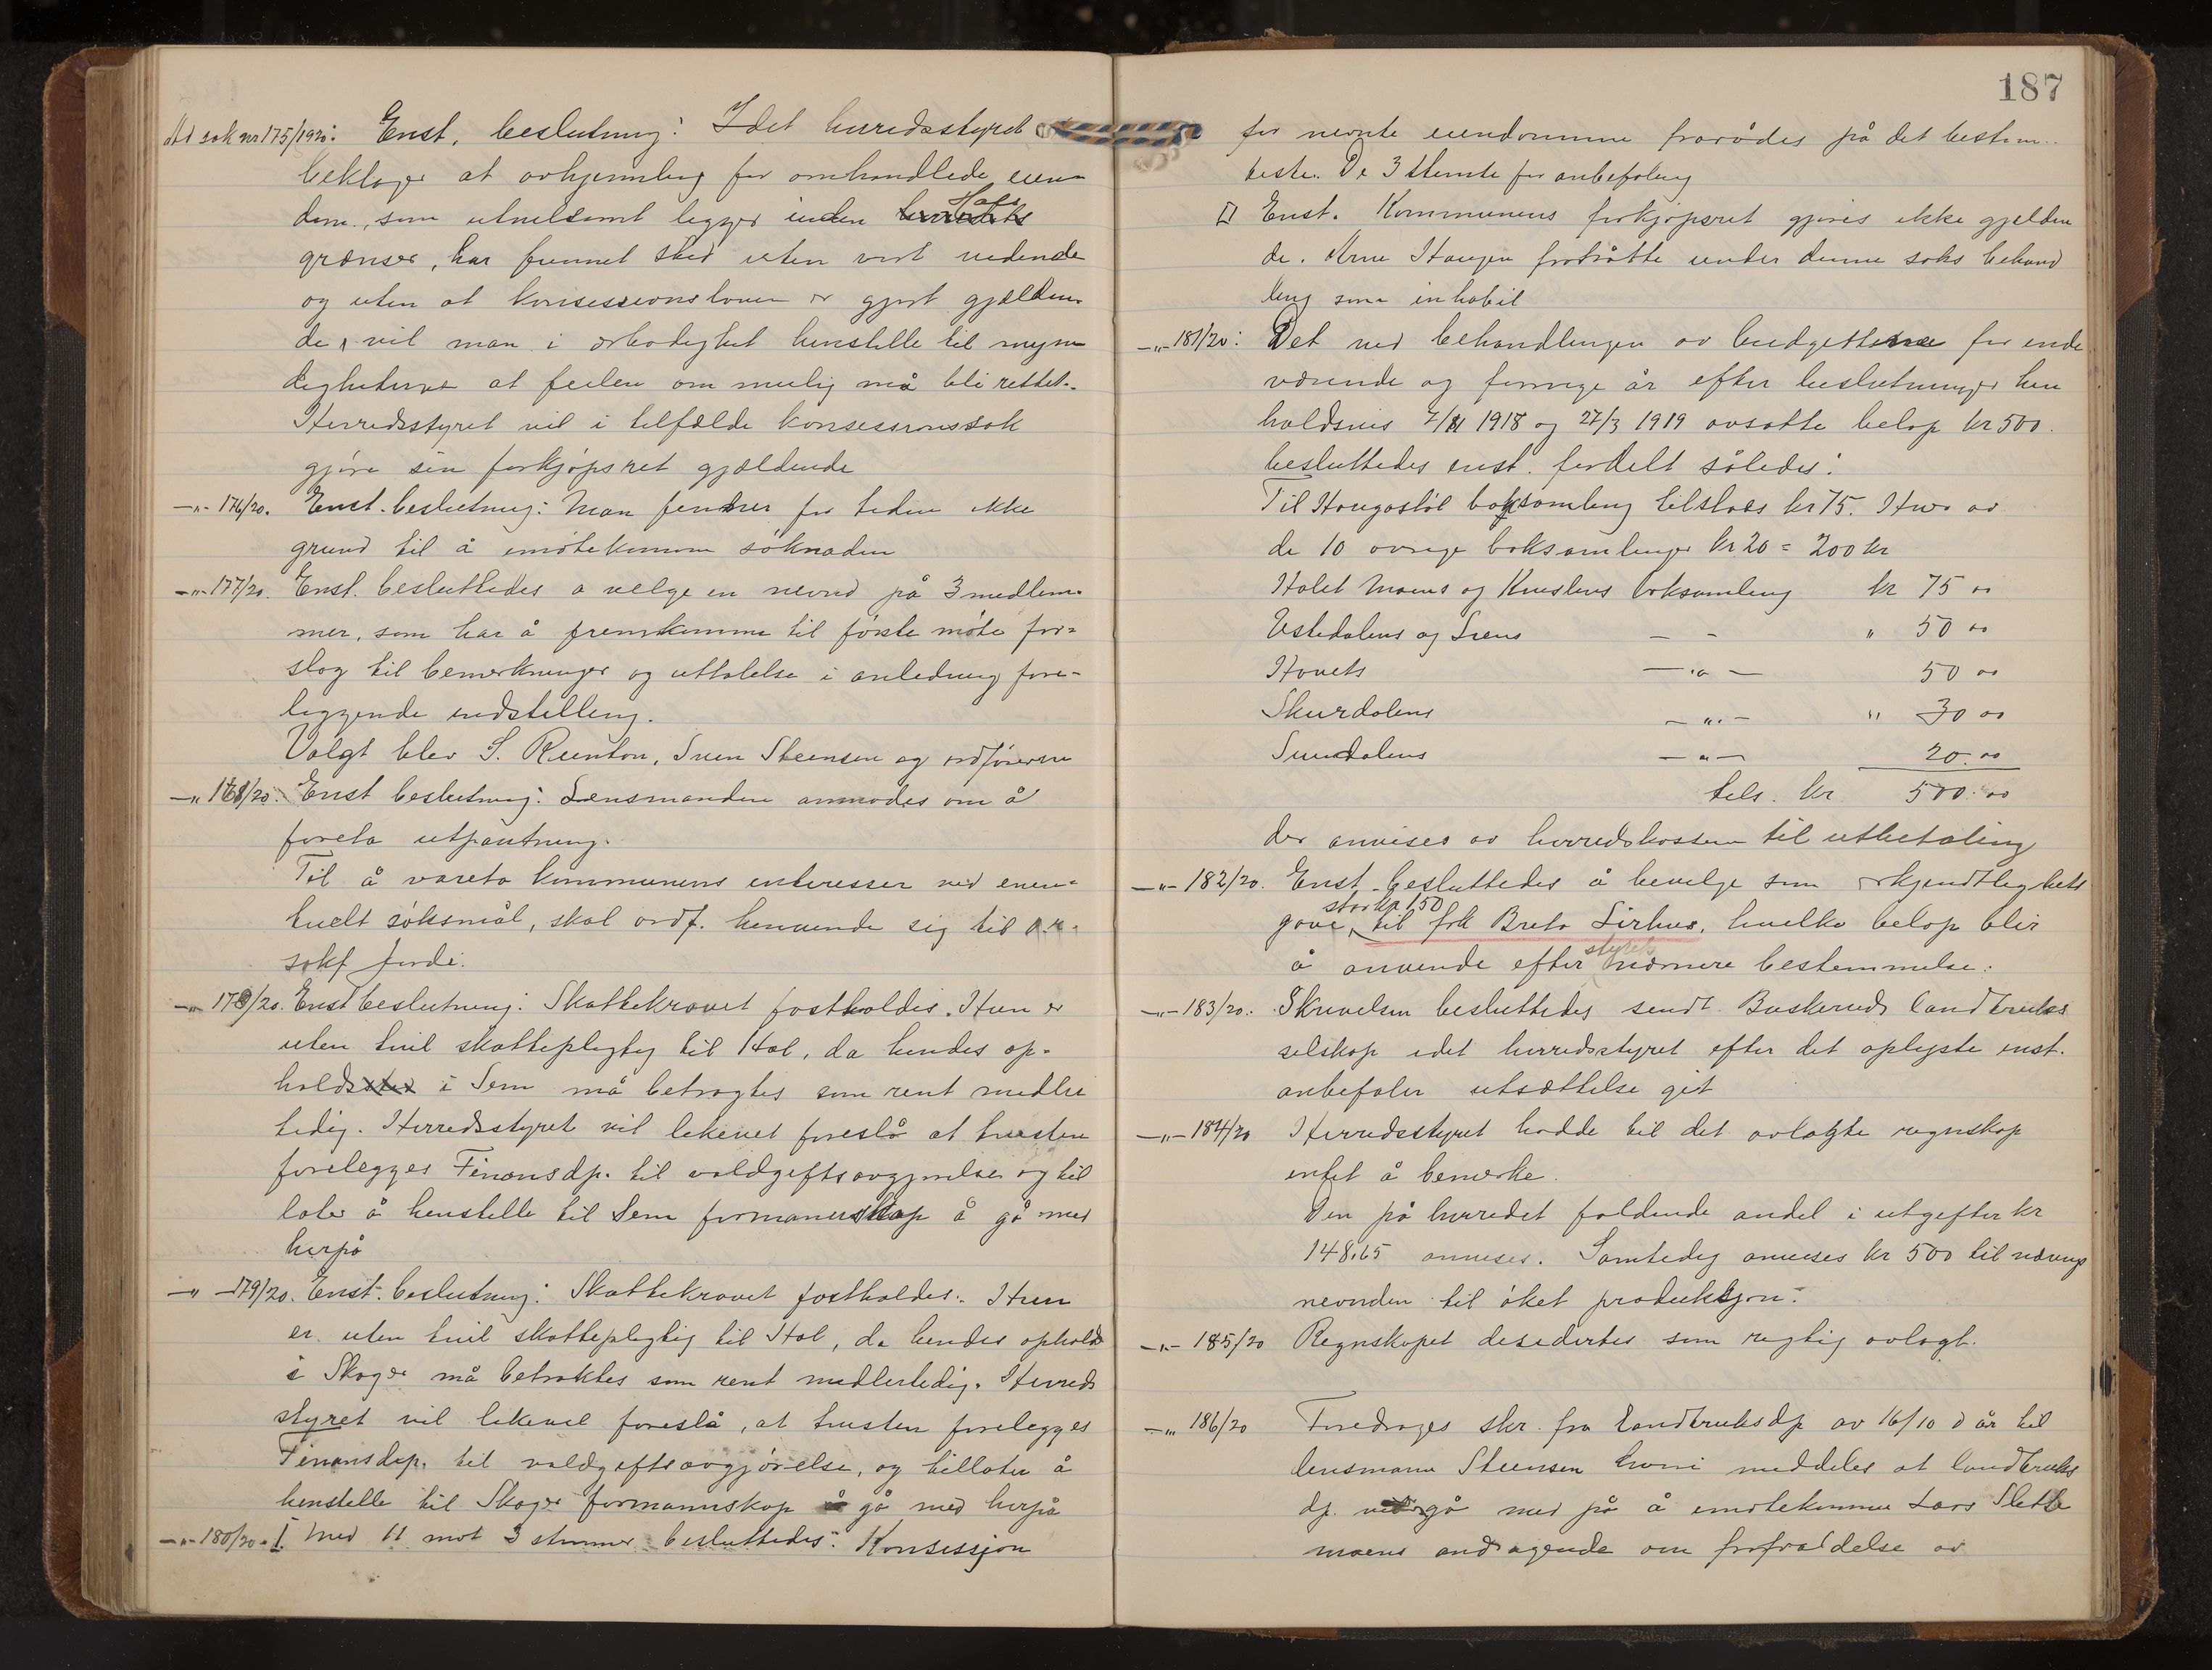 Ad sak nr 175/1920: Enst. beslutning: Idet herredsstyret
beklager at avhjemling for omhandlede eien-
dom, som utvilsomt ligger inden Hols
grænser, har funnet sted uten vort vidende
og uten at konsesionsloven er gjort gjælden-
de, vil man i ærbødighet henstille til myn-
dighetene at feilen om mulig må bli rettet.
Herredsstyret vil i tilfælde konsessionssak
gjøre sin forkjøpsret gjældende
—"— 176/20. Enst. beslutning: Man finder for tiden ikke
grund til å imøtekomme søknaden
—"— 177/20. Enst. besluttedes a velge en nevnd på 3 medlem-
mer, som har å fremkomme til første møte for-
slag til bemerkninger og uttalelse i anledning fore-
liggende indstilling.
Valgt blev S. Reinton, Sven Steensen og ordføreren
—"— 178/20. Enst beslutning: Lensmanden anmodes om å
foreta utpantning.
Til å vareta kommunens interesser ved even-
tuelt søksmål, skal ordf. henvende sig til o.r.
sakf Jordi.
—"— 178/20. Enst beslutning: Skattekravet fastholdes. Hun er
uten tvil skattepligtig til Hol, da hendes op-
hold i Sem må betragtes som rent midler
tidig. Herredsstyret vil likevel foreslå at tvisten
forelegges Finansdp. til voldgiftsavgjørelse og til
later å henstille til Sem formannskap å gå med
herpå
—"— 179/20. Enst. beslutning: Skattekravet fastholdes. Hun
er uten tvil skattepligtig til Hol, da hendes ophold
i Skoger må betraktes som rent midlertidig. Herreds
styret vil likevel foreslå, at tvisten forelegges
Finansdep. til voldgiftsavgjørelse, og tillater å
henstille til Skoger formannskap å gå med herpå
—"— 180/20. I. Med 11 mot 3 stemmer besluttedes: Konsesjon
187
for nevnte eiendomme frarådes på det bestem-
teste. De 3 stemte for anbefaling
Enst. Kommunens forkjøpsret gjøres ikke gjelden
de. Arne Haugen fratrådte under denne saks behand
ling som inhabil
—"— 181/20: Det ved behandlingen av budgetterne for inde
værende og forrige år efter beslutninger hen
holdsvis 7/11 1918 og 27/3 1919 avsatte beløp kr 500.
besluttedes enst. fordelt således:
Til Haugastøl boksamling tilstaes kr 75. Hver av
de 10 øvrige boksamlinger kr 20 = 200 kr
Holet Moens og Kneslens boksamling kr 75 00
Ustedalens og Liens — - " 50 00
Hovets —"— 50 00
Skurdalens —"— " 30 00
Sundalens —"— 20.00
tils. kr 500.00
der anvises av herredskassen til utbetaling
—"— 182/20. Enst. besluttedes å bevilge som erkjendtlighets
gave, stor kr 150 til frk Breta Lirhus, hvilke beløp blir
å anvende efter styrets nærmere bestemmelse.
—"— 183/20. Skrivelsen besluttedes sendt Buskeruds landbruks
selskap idet herredsstyret efter det oplyste enst.
anbefaler utsættelse git
—"— 184/20 Herredsstyret hadde til det avlagte regnskap
intet å bemerke.
Den på herredet faldende andel i utgifter kr
148.65 anvises. Samtidig anvises kr 500 til nævnte
nevnden til øket produksjon.
—"— 185/20 Regnskapet desidertes som rigtig avlagt.
—"— 186/20 Foredroges skr. fra Landbruksdp av 16/10 d år til
lensmann Steensen hvori meddeles at landbruks
dp. gå med på å imøtekomme Lars Slette
moens andragende om frafaldelse av